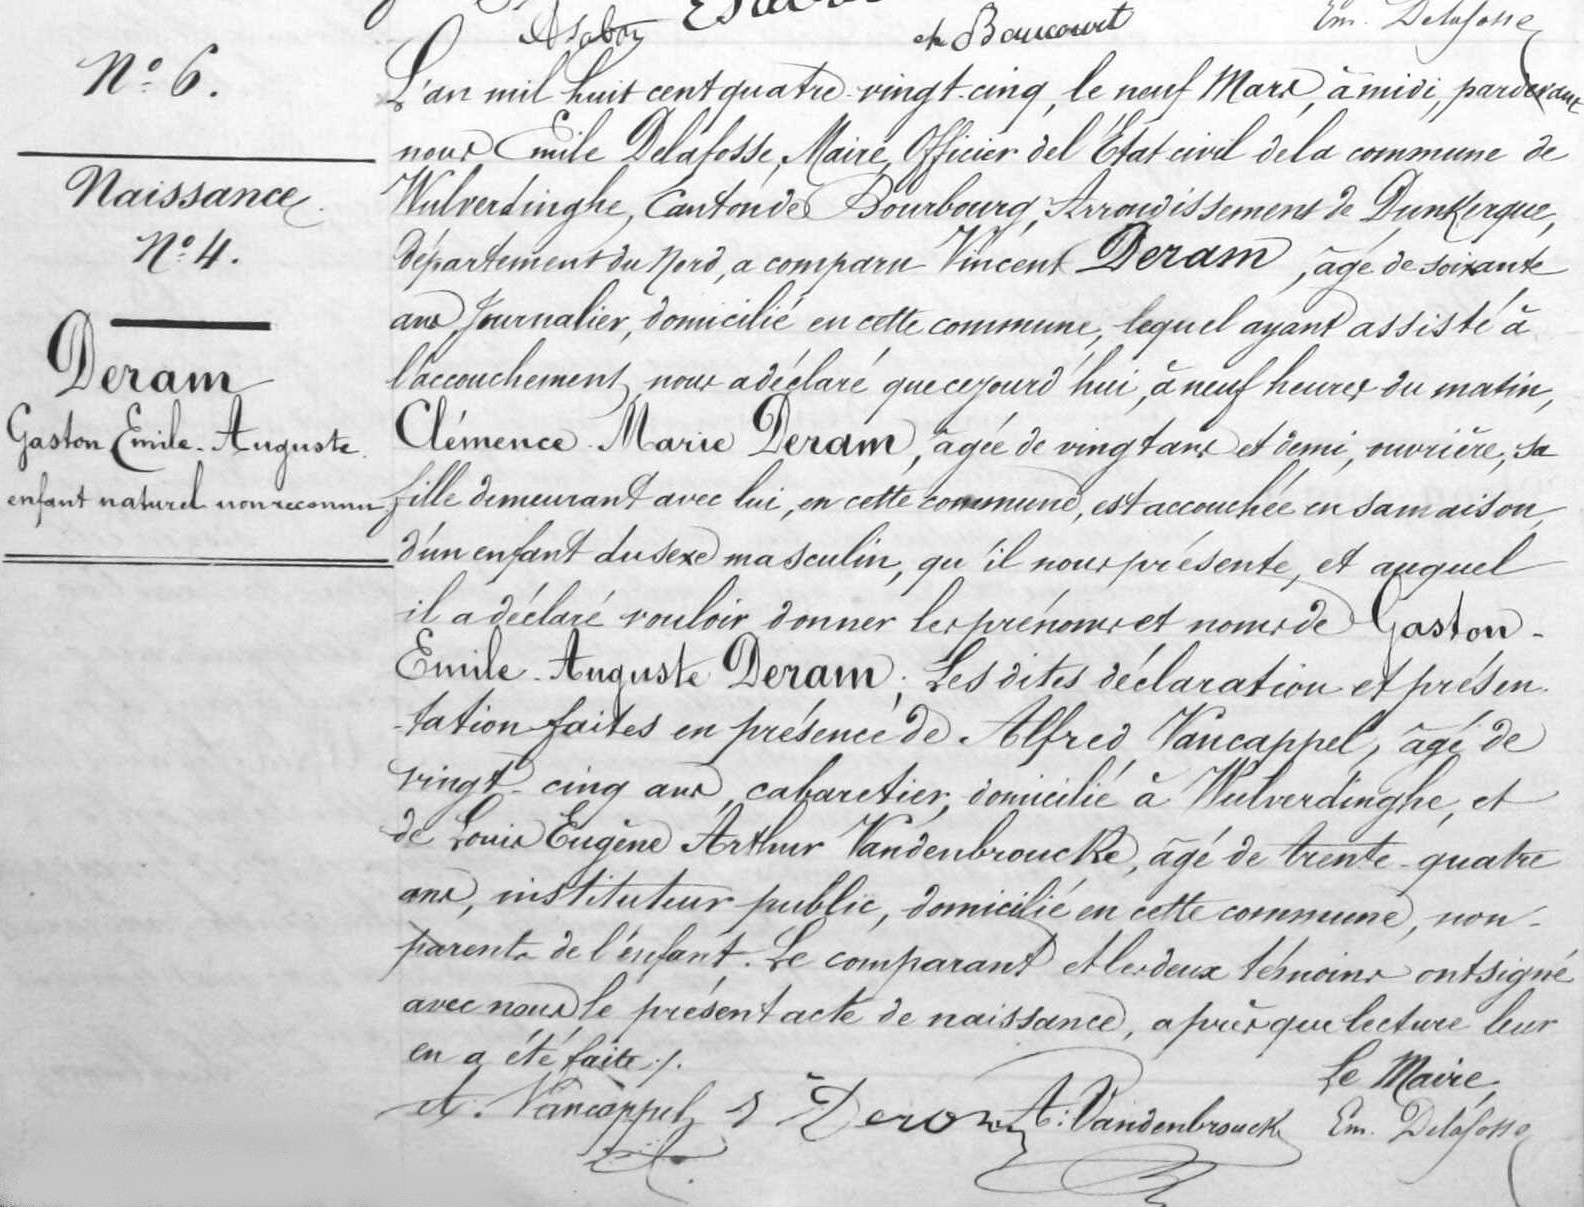 et Boucourt
Em. Delafosse
N° 6.
Naissance.
N° 4.
Deram
Gaston Emile-Auguste.
enfant naturel non reconnu
L'an mil huit cent quatre-vingt-cinq, le neuf Mars, à midi, pardevant
nous Emile Delafosse, Maire, Officier de l'État civil de la commune de
Wulverdinghe, Canton de Bourbourg, Arrondissement de Dunkerque,
département du Nord, a comparu Vincent Deram, âgé de soixante
ans, Journalier, domicilié en cette commune, lequel ayant assisté à
l'accouchement, nous a déclaré que cejourd'hui, à neuf heures du matin,
Clémence-Marie Deram, âgée de vingt ans et demi, ouvrière, sa
fille demeurant avec lui, en cette commune, est accouchée en sa maison,
d'un enfant du sexe masculin, qu'il nous présente, et auquel
il a déclaré vouloir donner les prénoms et noms de Gaston-
Emile-Auguste Deram; Les dites déclaration et présen-
-tation faites en présence de Alfred Vancappel, âgé de
vingt-cinq ans, cabaretier, domicilié à Wulverdinghe, et
de Louis Eugène Arthur Vandenbroucke, âgé de trente-quatre
ans, instituteur public, domicilié en cette commune, non-
parents de l'enfant. Le comparant et les deux témoins ont signé
avec nous le présent acte de naissance, après que lecture leur
en a été faite ./.
Le Maire,
A. Vancappel Deram A. Vandenbroucke Em. Delafosse